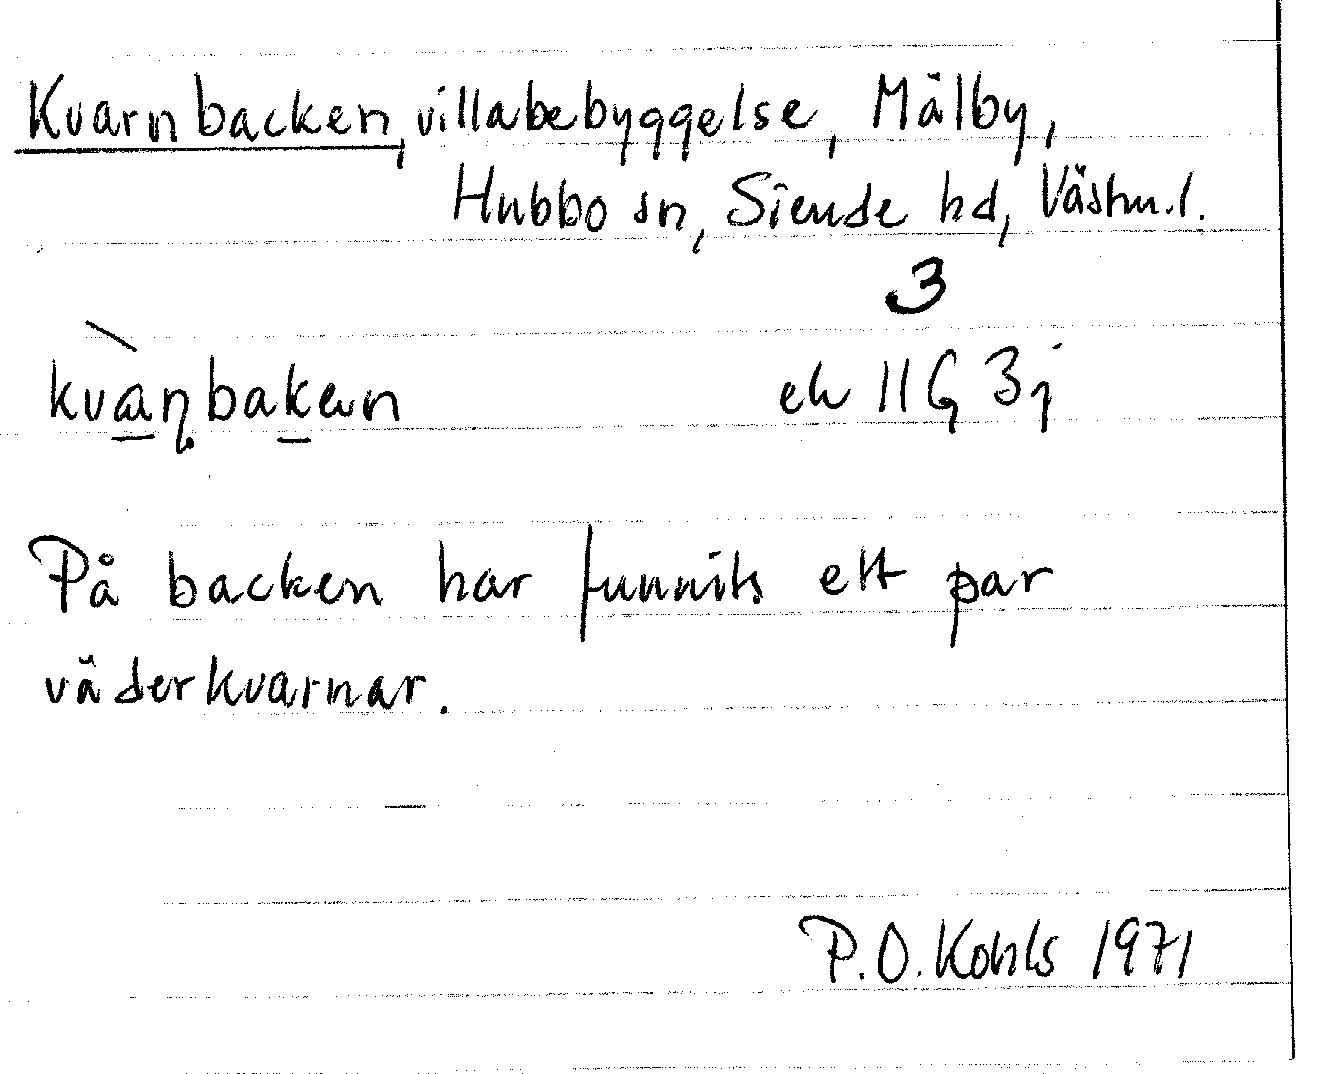 Kvarnbacken, villabebyggelse, Målby,
Hubbo sn, Siende hd, Västm.l.
3
kvàɳbakən ek 11G 3j
På backen har funnits ett par
väderkvarnar.
P.O. Kohls 1971